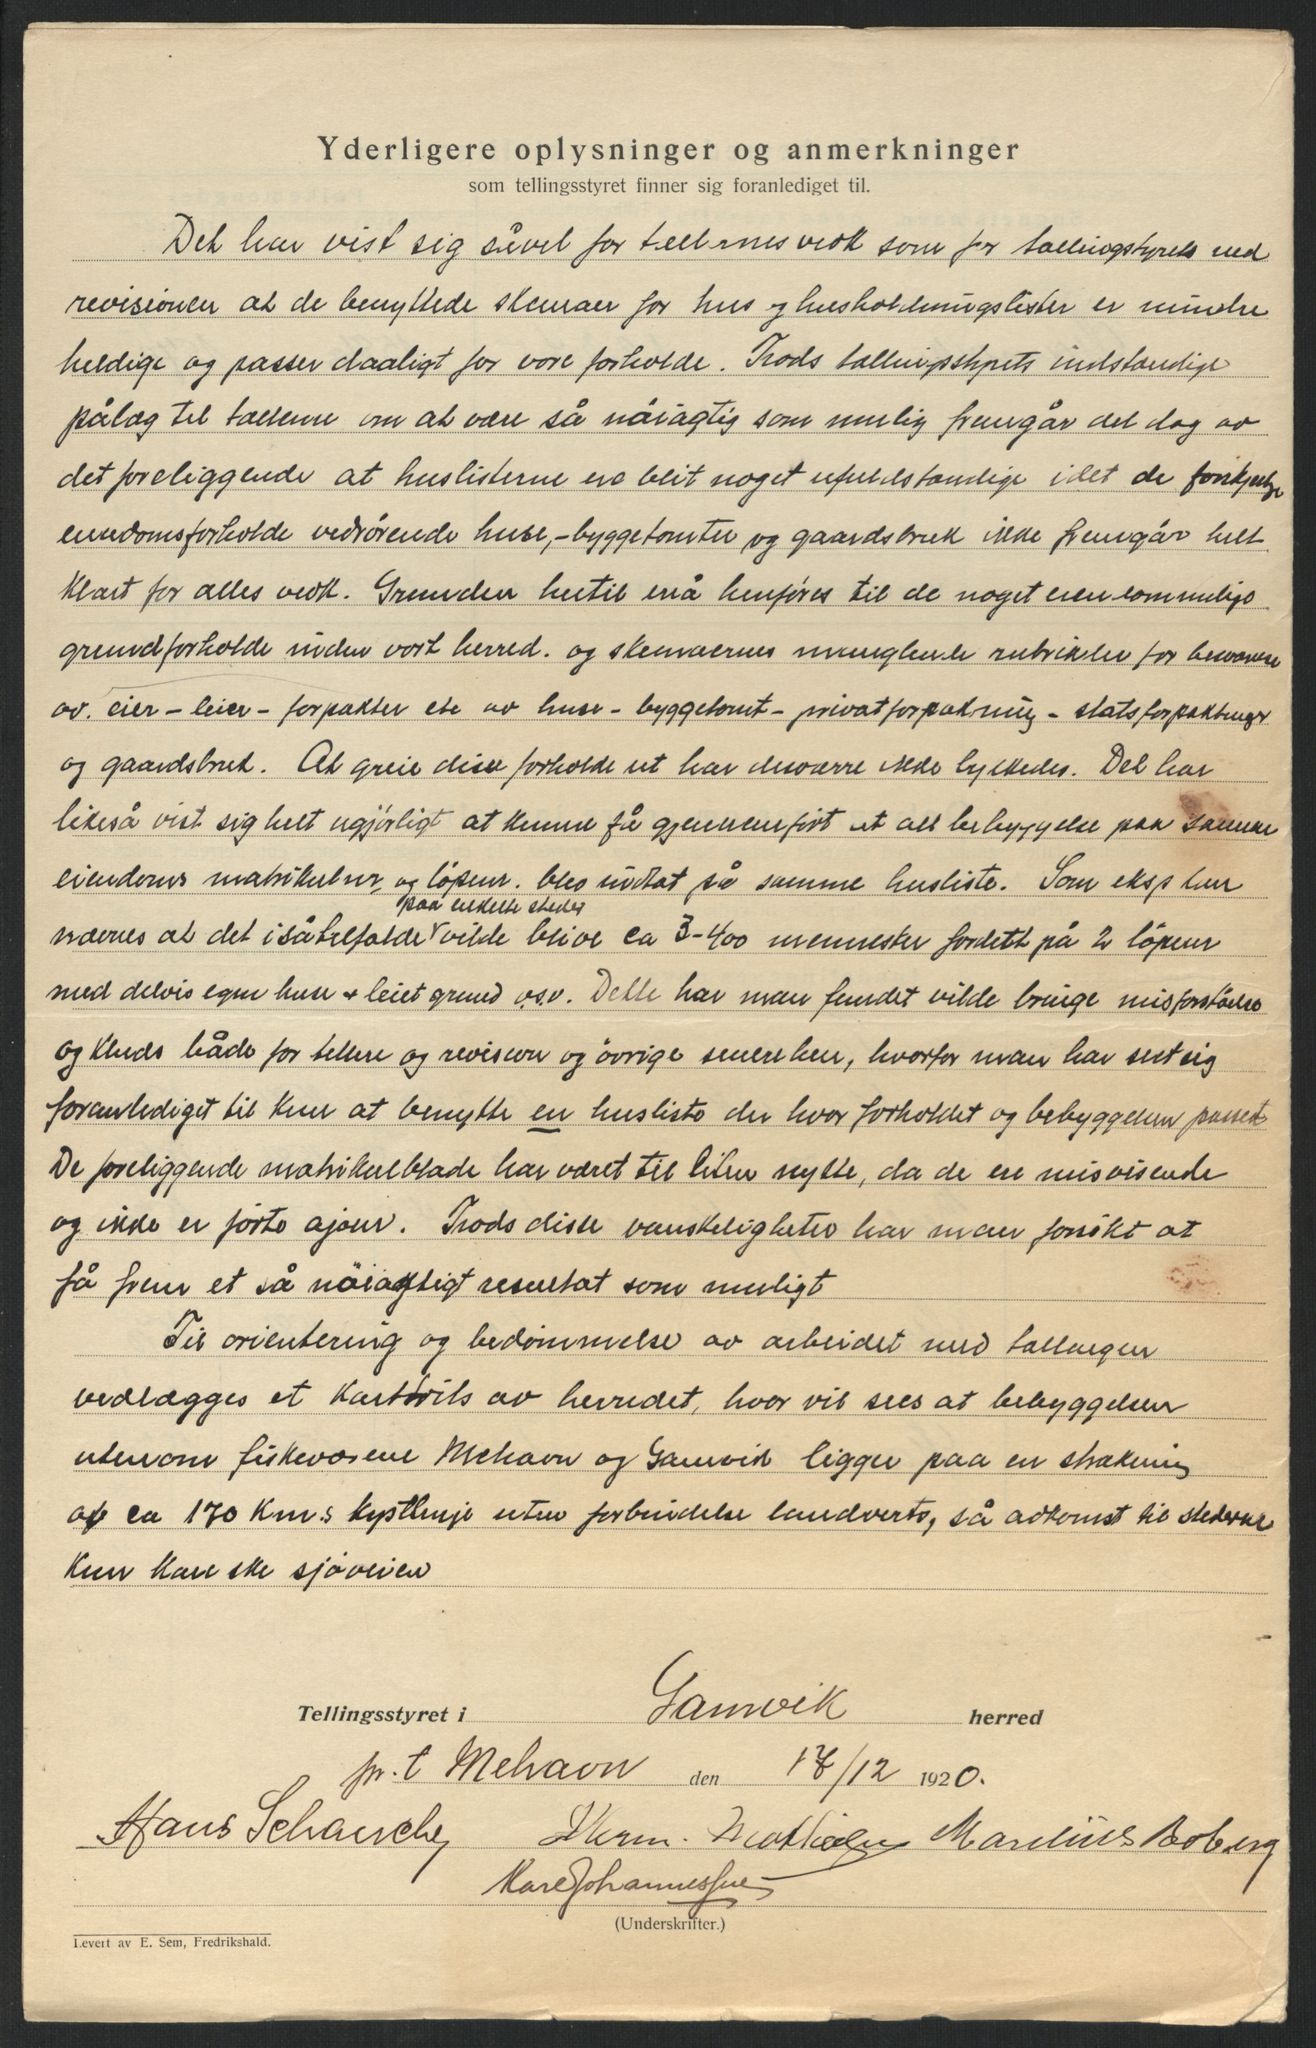 Yderligere oplysninger og anmerkninger
som tellingsstyret finner sig foranlediget til.
Det har vist sig såvel for tellernes vedk som for tællingstyrets ved
revisionen at de benyttede skemaer for hus og husholdningslister er mindre
heldige og passer daaligt for vore forholde. Trods tællingsstyrets indstændige
pålæg til tællerne om at være så nöiagtig som mulig fremgår det dog av
det foreliggende at huslisterne ere blit noget ufuldstændige idet de forskjellige
eiendomsforholde vedrörende huse,-byggetomter og gaardsbruk ikke fremgår helt
klart for alles vedk. Grunden hertil må henföres til de noget eiendommelige
grundforholde inden vort herred. og skemaernes manglende rubrikker for besvarelse
av. eier - leier - forpakter etc av huse - byggetomt - privatforpakning - statsforpaktninger
og gaardsbruk. At greie disse forholde ut har desværre ikke lykkedes. Det har
likeså vist sig helt ugjörligt at kunne få gjennemfört at all bebyggelse paa samme
eiendoms matrikulnr og löpenr. blev indtat på samme husliste. Som eksp kan
nævnes at det isåtilfælde vilde blive ca 3-400 mennesker fordelt på 2 löpenr
paa enkelte steder
med delvis egne huse + leiet grund o.s.v. Dette har man fundet vilde bringe misforståelse
og kluds både for tellere og revision og övrige senere hen, hvorfor man har set sig
foranlediget til kun at benytte en husliste der hvor forholdet og bebyggelsen passet
De foreliggende matrikulblade har været til liten nytte, da de er misvisende
og ikke er förte ajour. Trods disse vanskeligheter har man forsökt at
få frem et så nöiagtigt resultat som muligt
Til orientering og bedömmelse av arbeidet med tællingen
vedlægges et Kartrits av herredet, hvor vil sees at bebyggelsen
utenom fiskeværene Mehavn og Gamvik ligger paa en strækning
af ca 170 Km.s kystlinje uten forbindelse landverts, så adkomst til stederne
kun kan ske sjöveien
Tellingsstyret i Gamvik herred
pr. t Mehavn den 17/12 1920.
Hans Schanche Herm. Mathisen Marelius Roberg
Kare Johannessen
(Underskrifter.)
Levert av E. Sem, Fredrikshald.